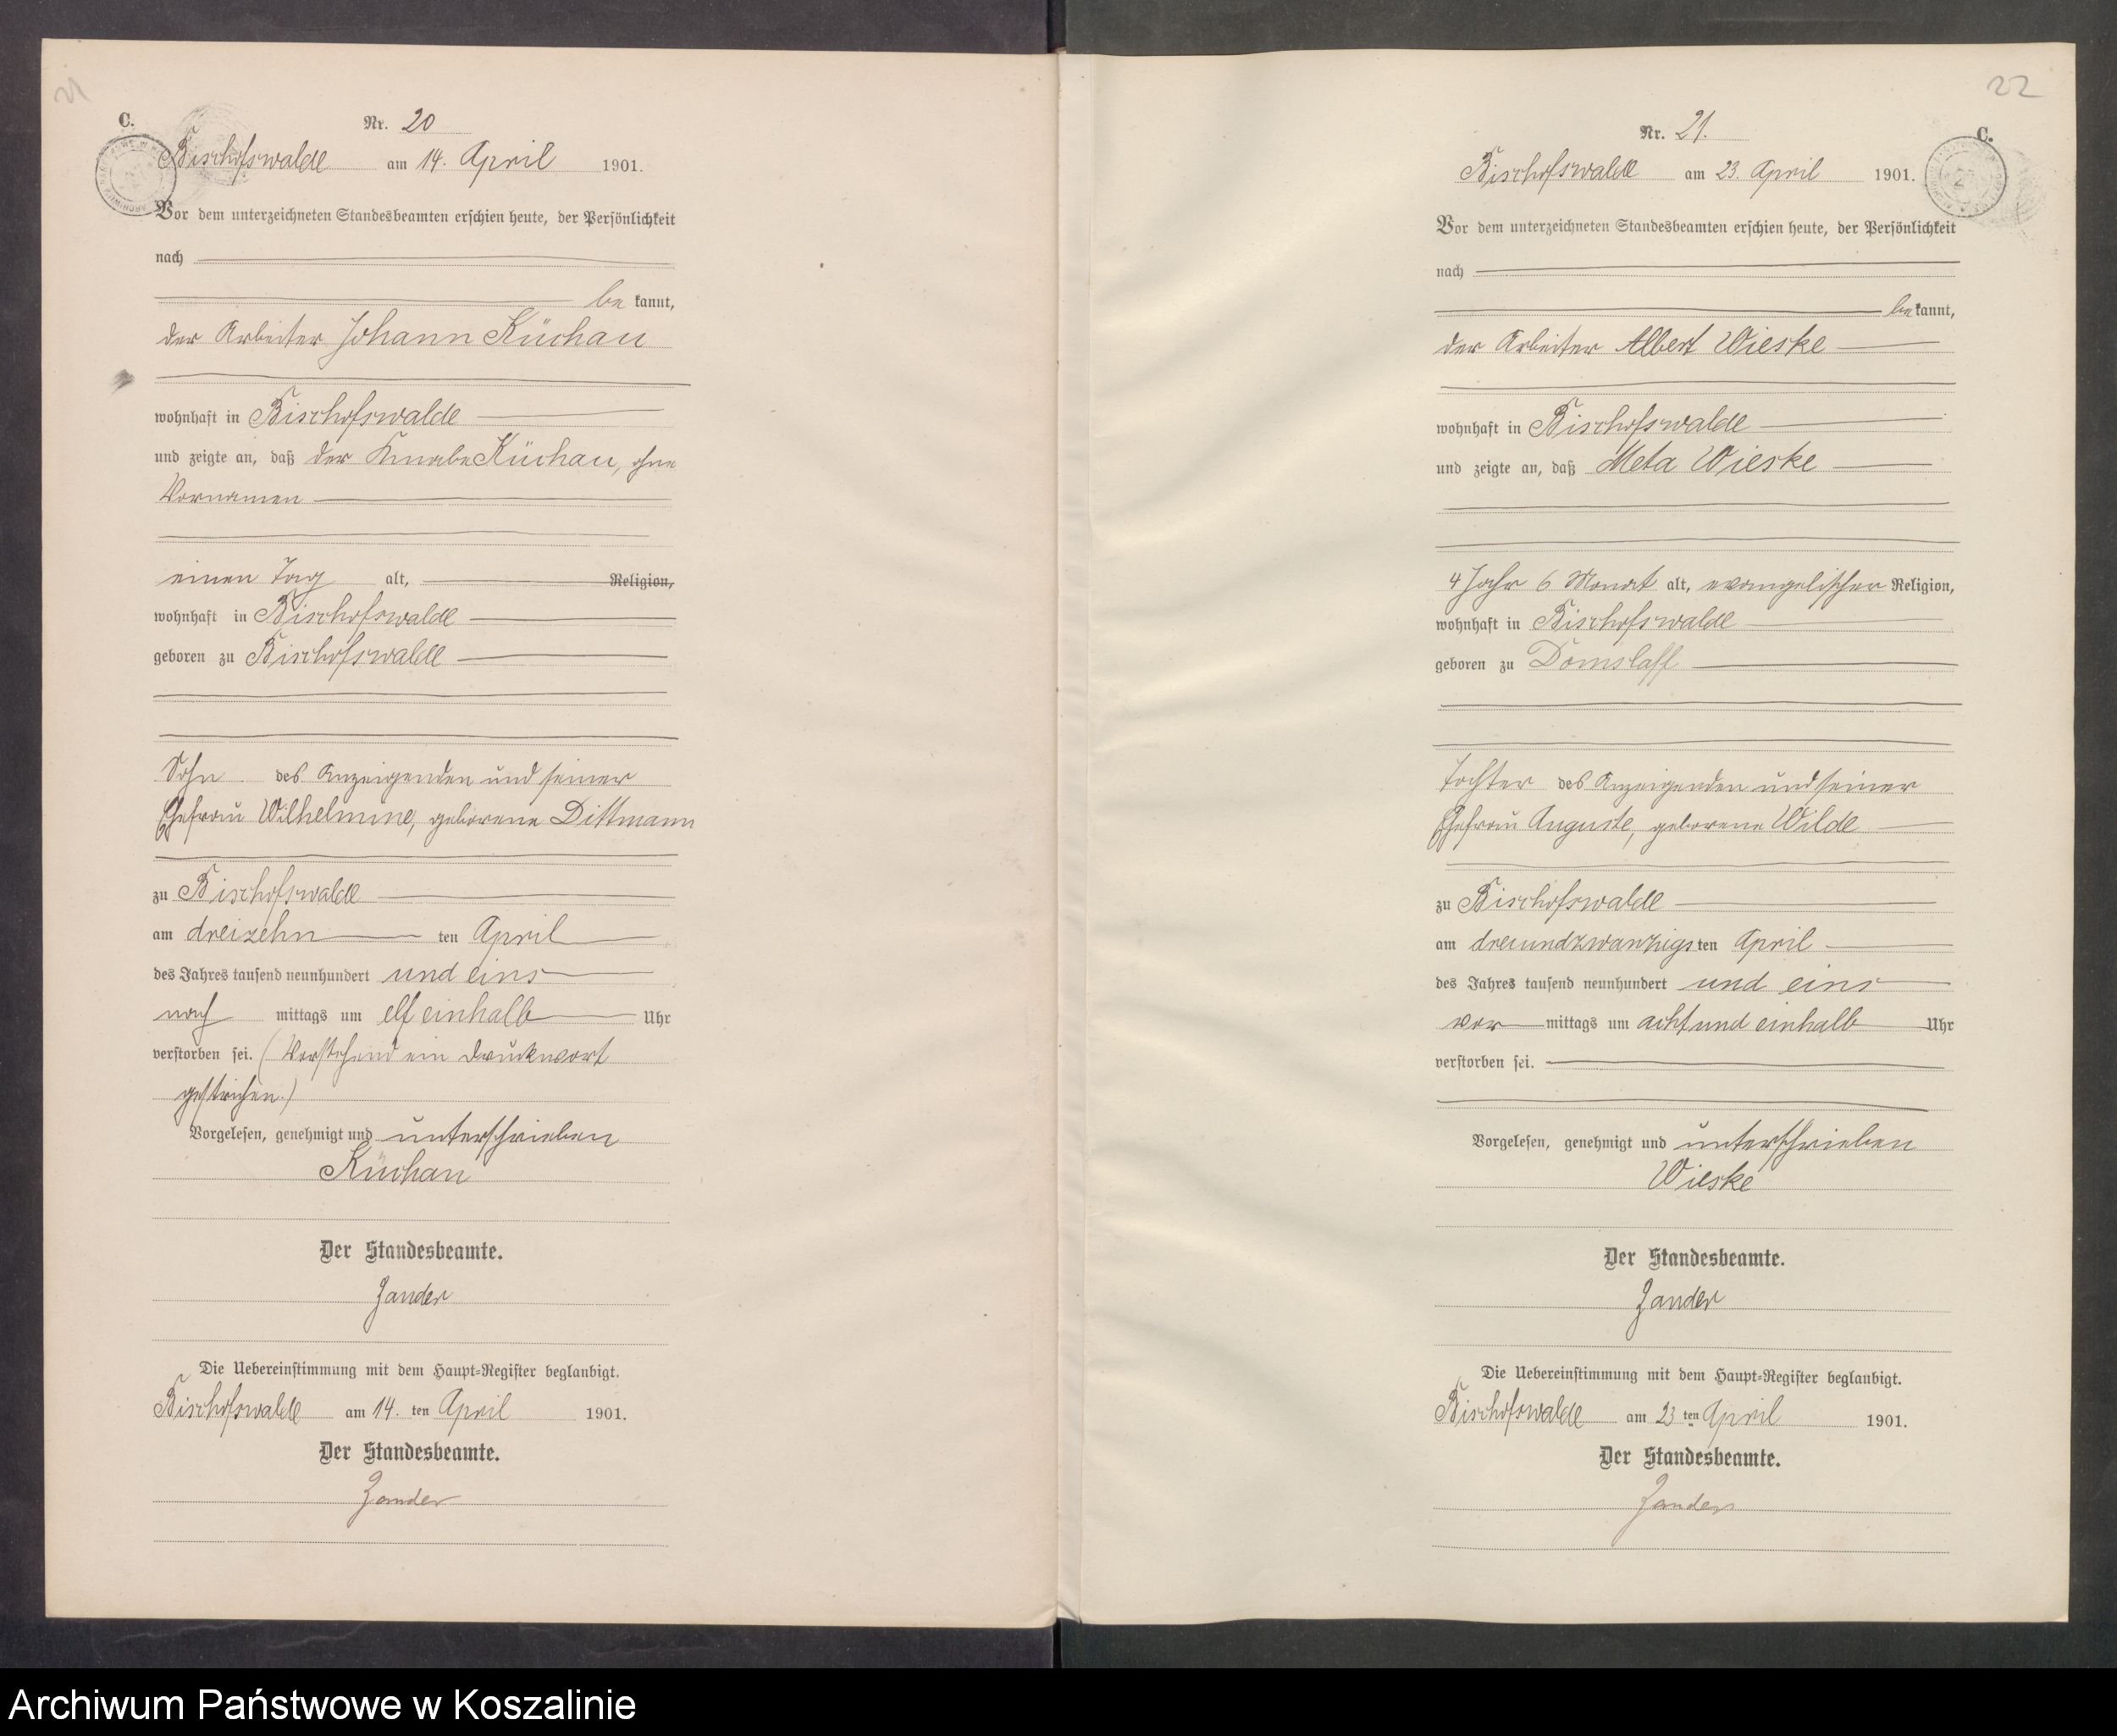 21
C.
Nr. 20
Bischofswalde am 14. April 1901.
Vor dem unterzeichneten Standesbeamten erschien heute, der Persönlichkeit
nach
be kannt,
der Arbeiter Johann Küchau
wohnhaft in Bischofswalde
und zeigte an, daß der Knabe Küchau, ohne
Vornamen
einen Tag alt, Religion,
wohnhaft in Bischofswalde
geboren zu Bischofswalde
Sohn des Anzeigenden und seiner
Ehefrau Wilhelmine, geborene Dittmann
zu Bischofswalde
am dreizehn ten April
des Jahres tausend neunhundert und eins
nach mittags um elf einhalb Uhr
verstorben sei. (Vorstehend ein Druckwort
gestrichen.)
Vorgelesen, genehmigt und unterschrieben
Küchau
Der Standesbeamte.
Zander
Die Uebereinstimmung mit dem Haupt-Register beglaubigt.
Bischofswalde am 14. ten April 1901.
Der Standesbeamte.
Zander
22
C.
Nr. 21.
Bischofswalde am 23. April 1901.
Vor dem unterzeichneten Standesbeamten erschien heute, der Persönlichkeit
nach
be kannt,
der Arbeiter Albert Wieske
wohnhaft in Bischofswalde
und zeigte an, daß Meta Wieske
4 Jahr 6 Monat alt, evangelischer Religion,
wohnhaft in Bischofswalde
geboren zu Domslaff
Tochter des Anzeigenden und seiner
Ehefrau Auguste, geborene Wilde
zu Bischofswalde
am dreiundzwanzigs ten April
des Jahres tausend neunhundert und eins
vor mittags um acht und einhalb Uhr
verstorben sei.
Vorgelesen, genehmigt und unterschrieben
Wieske
Der Standesbeamte.
Zander
Die Uebereinstimmung mit dem Haupt-Register beglaubigt.
Bischofswalde am 23 ten April 1901.
Der Standesbeamte.
Zander
Archiwum Państwowe w Koszalinie